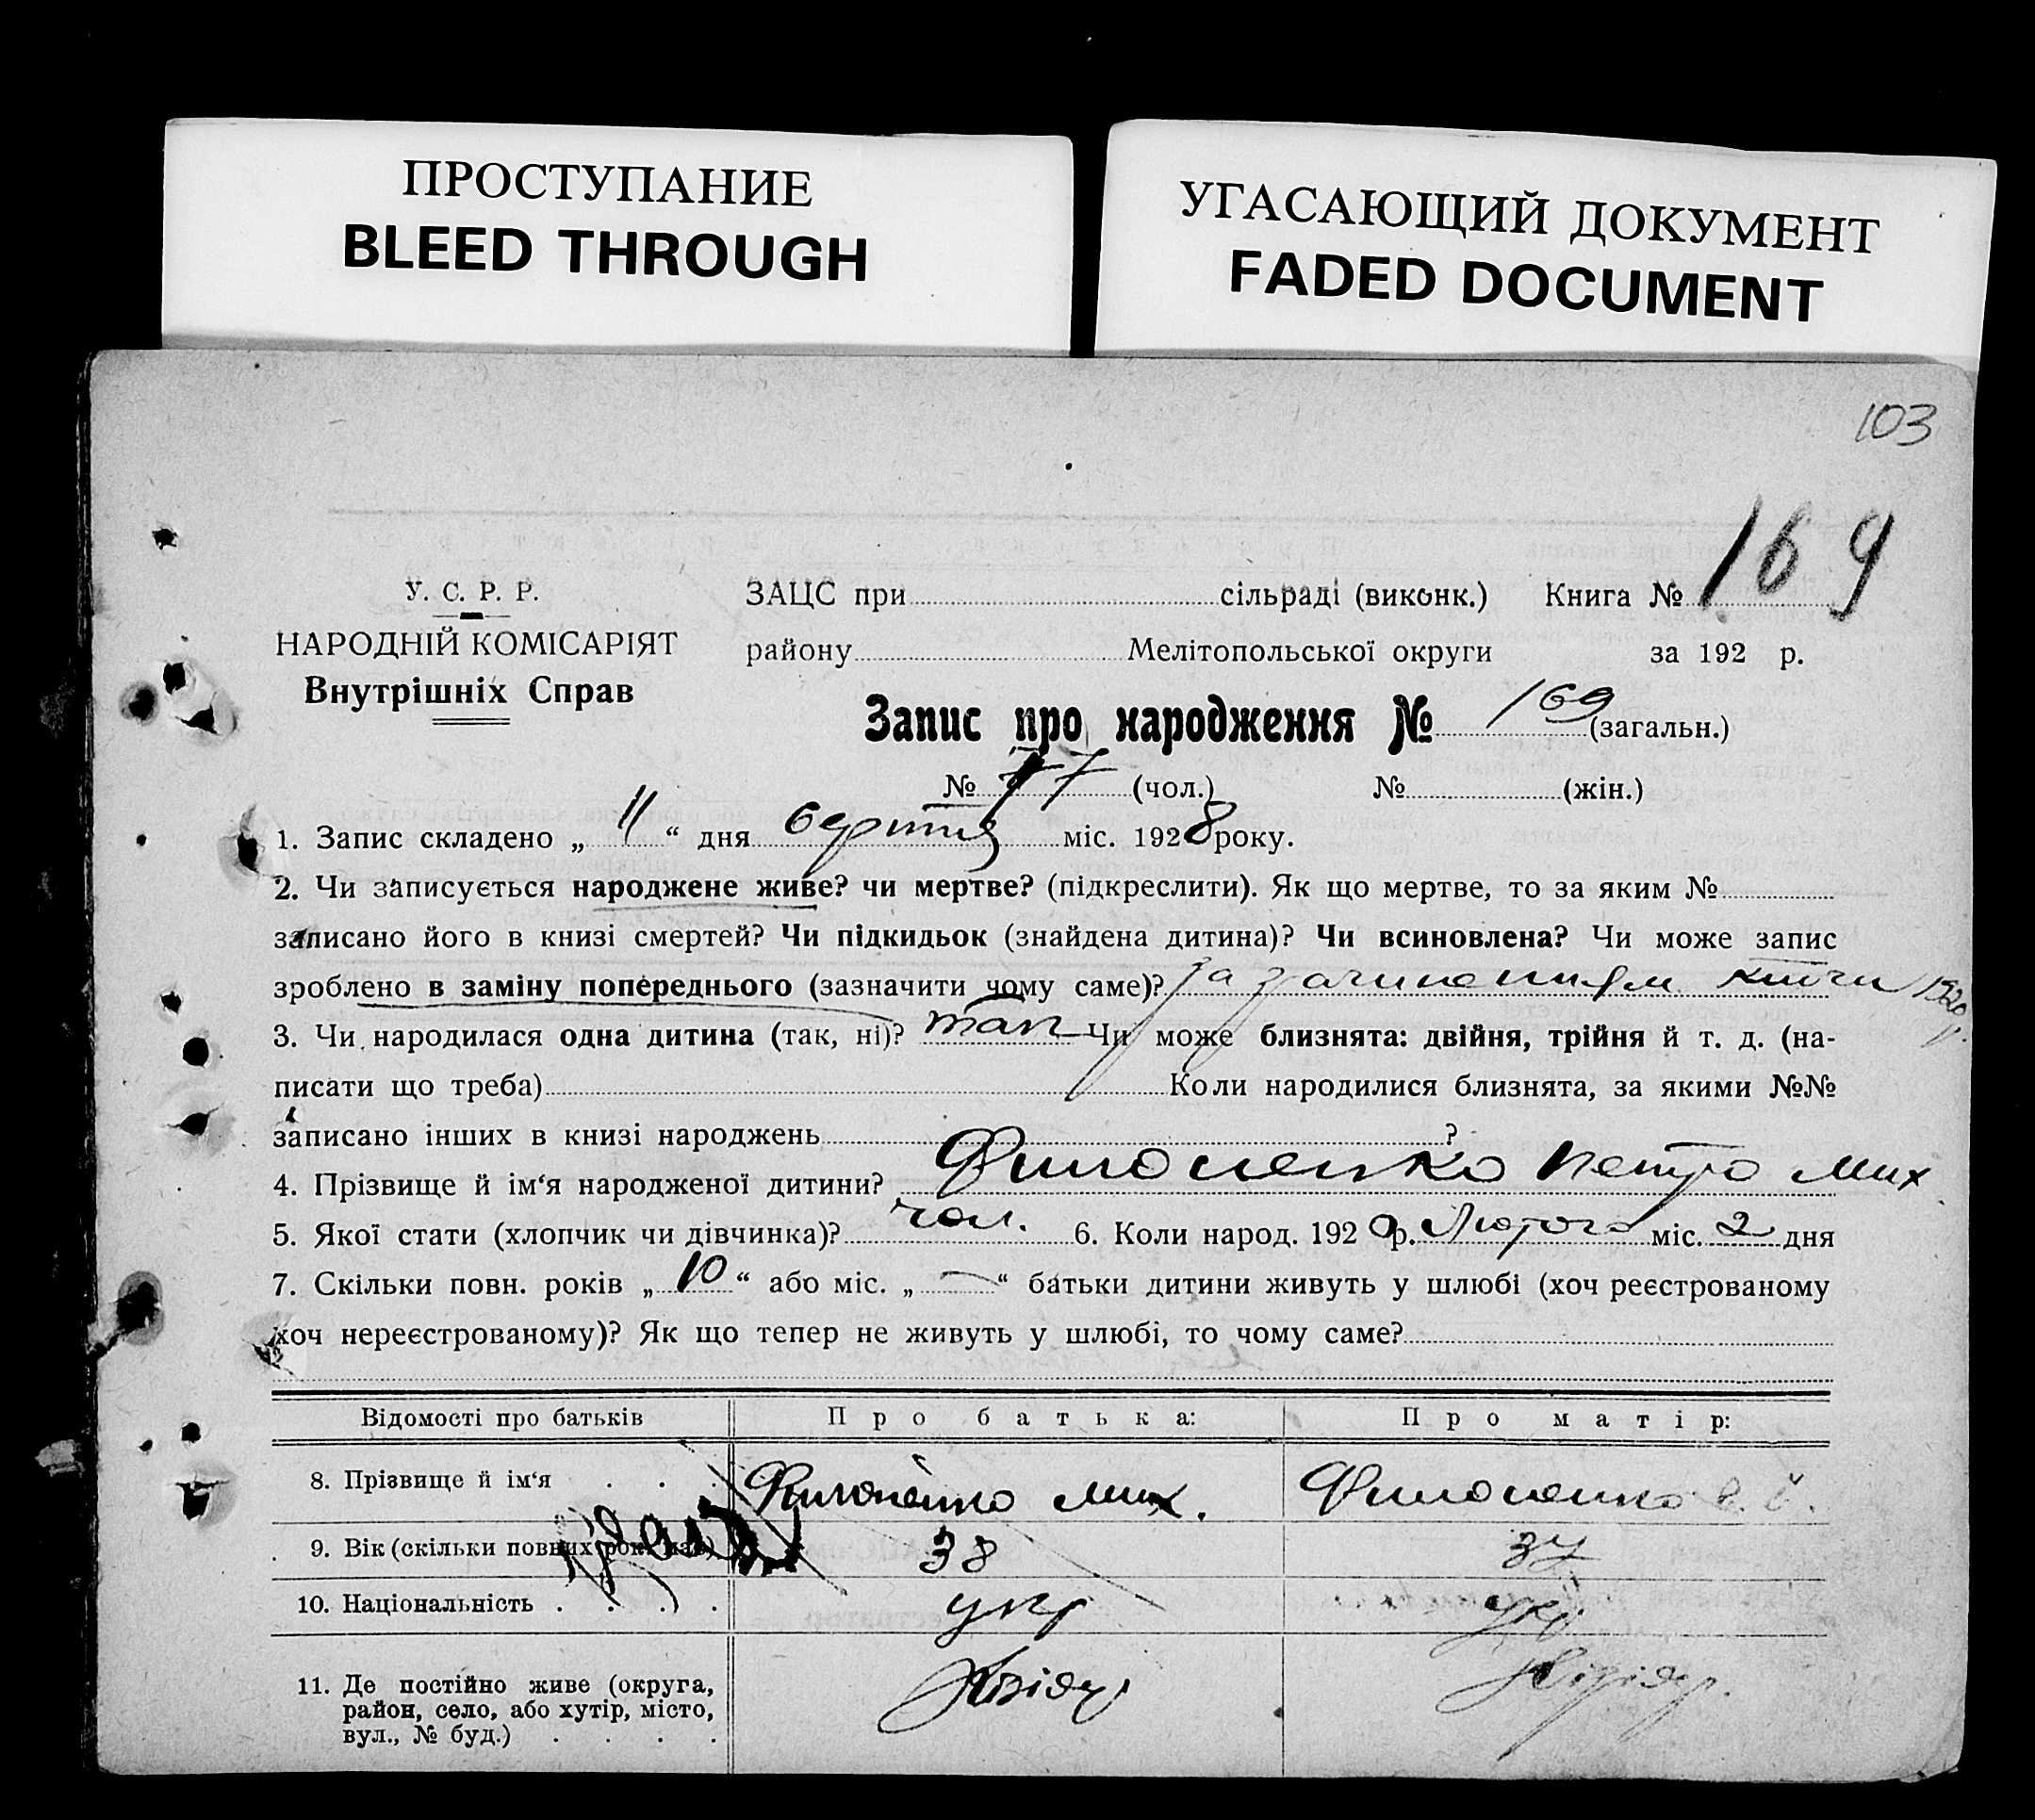 ПРОСТУПАНИЕ
BLEED THROUGH
УГАСАЮЩИЙ ДОКУМЕНТ
FADED DOCUMENT
103
У. С. Р. Р.
НАРОДНІЙ КОМІСАРІЯТ
Внутрішніх Справ
ЗАЦС при сільраді (виконк.) Книга № 169
району Мелітопольської округи за 192 р.
Запис про народження № 169 (загальн.)
№ 77 (чол.) № (жін.)
1. Запис складено „ 11 “ дня березня міс. 1928 року.
2. Чи записується народжене живе? чи мертве? (підкреслити). Як що мертве, то за яким №
записано його в книзі смертей? Чи підкидьок (знайдена дитина)? Чи всиновлена? Чи може запис
зроблено в заміну попереднього (зазначити чому саме)? За книги 1920р.
3. Чи народилася одна дитина (так, ні)? так Чи може близнята: двійня, трійня й т. д. (на-
писати що треба) Коли народилися близнята, за якими №№
записано інших в книзі народжень ?
4. Прізвище й ім‘я народженої дитини? Филоненко Петро Мих
5. Якої стати (хлопчик чи дівчинка)? чол. 6. Коли народ. 1920 р. Лютого міс. 2 дня
7. Скільки повн. років „ 10 “ або міс. „ — “ батьки дитини живуть у шлюбі (хоч реєстрованому
хоч нереєстрованому)? Як що тепер не живуть у шлюбі, то чому саме?
Відомості про батьків Про батька: Про матір:
8. Прізвище й ім‘я . . . Филоненко Мих. Филоненко
9. Вік (скільки повних рок. має) 38 37
10. Національність . . . . укр укр
11. Де постійно живе (округа,
район, село, або хутір, місто,
вул., № буд.) . . . .